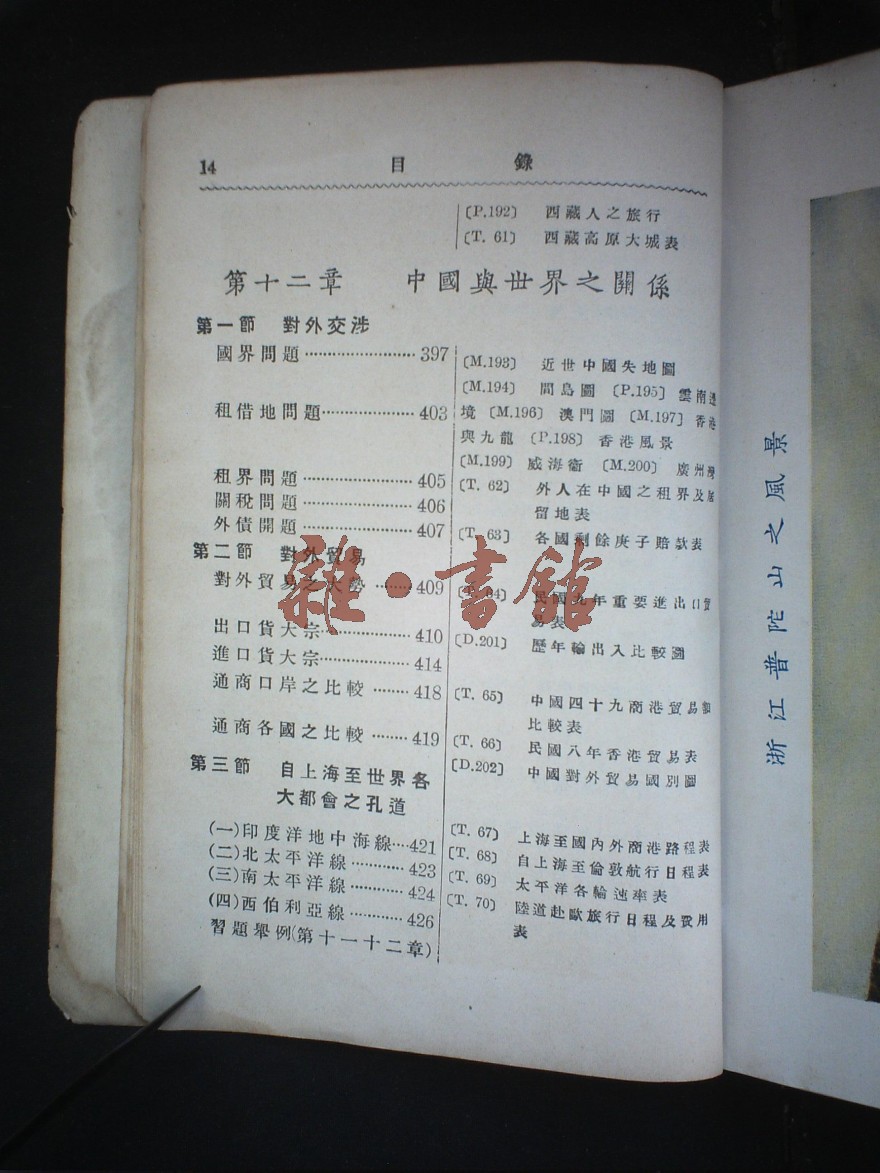 14 目 錄
〔P.192〕 西藏人之旅行
〔T. 61〕 西藏高原大城表
第十二章 中國與世界之關係
第一節 對外交涉
國界問題 397
租借地問題 403
租界問題 405
關稅問題 406
外債開題 407
第二節 對外貿易
對外貿易之大勢 409
出口貨大宗 410
進口貨大宗 414
通商口岸之比較 418
通商各國之比較 419
第三節 自上海至世界各
大都會之孔道
(一)印度洋地中海線 421
(二)北太平洋線 423
(三)南太平洋線 424
(四)西伯利亞線 426
習題舉例(第十一十二章)
〔M.193〕 近世中國失地圖
〔M.194〕 間島圖 〔P.195〕 雲南邊
境 〔M.196〕 澳門圖 〔M.197〕 香港
與九龍 〔P.198〕 香港風景
〔M.199〕 威海衞 〔M.200〕 廣州灣
〔T. 62〕 外人在中國之租界及居
留地表
〔T. 63〕 各國剩餘庚子賠款表
〔T. 64〕 民國九年重要進出口貿
易表
〔D.201〕 歷年輸出入比較圖
〔T. 65〕 中國四十九商港貿易額
比較表
〔T. 66〕 民國八年香港貿易表
〔D.202〕 中國對外貿易國別圖
〔T. 67〕 上海至國內外商港路程表
〔T. 68〕 自上海至倫敦航行日程表
〔T. 69〕 太平洋各輪速率表
〔T. 70〕 陸道赴歐旅行日程及費用
表
浙江普陀山之風景
雜·書館